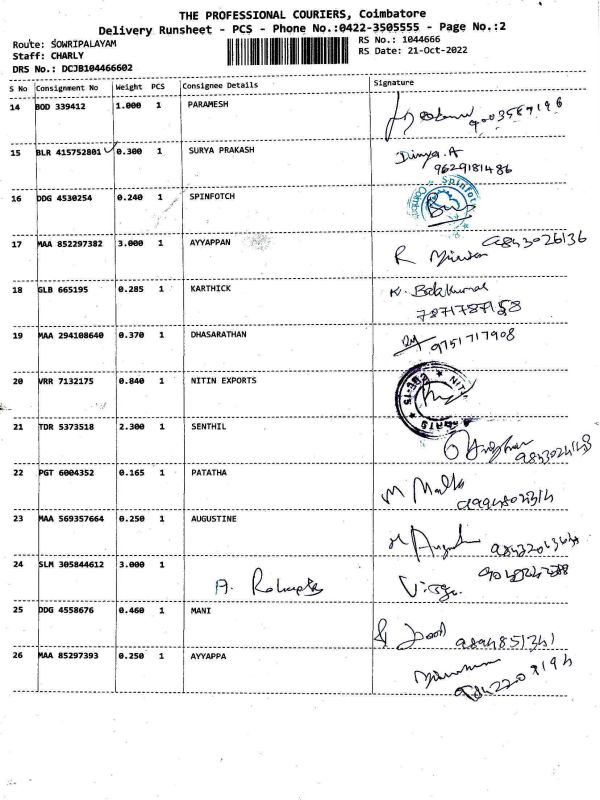 THE PROFESSIONAL COURIERS, Coimbatore
Delivery Runsheet - PCS - Phone No.:0422-3505555 - Page No.:2
Route: SOWRIPALAYAM
RS No.: 1044666
Staff: CHARLY
RS Date: 21-Oct-2022
DRS No.: DCJB104466602
S No Consignment No Weight PCS Consignee Details Signature
14 BOD 339412 1.000 1 PARAMESH
15 BLR 415752801 0.300 1 SURYA PRAKASH Divya.A
9629181486
16 DDG 4530254 0.240 1 SPINFOTCH
17 MAA 852297382 3.000 1 AYYAPPAN 9843026136
18 GLB 665195 0.285 1 KARTHICK K. Balakumar
19 MAA 294108640 0.370 1 DHASARATHAN 9751717908
20 VRR 7132175 0.840 1 NITIN EXPORTS
21 TDR 5373518 2.300 1 SENTHIL
22 PGT 6004352 0.165 1 PATATHA
23 MAA 569357664 0.250 1 AUGUSTINE
24 SLM 305844612 3.000 1
25 DDG 4558676 0.460 1 MANI
26 MAA 85297393 0.250 1 AYYAPPA